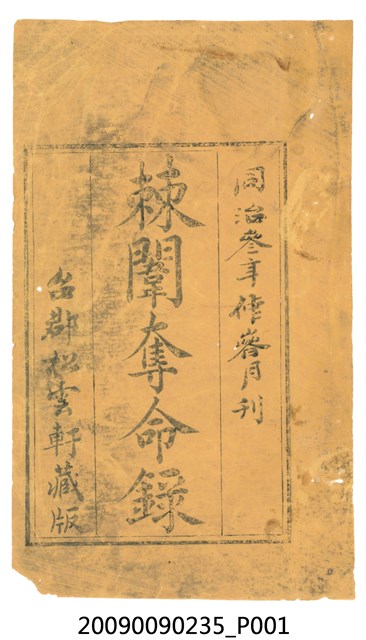 同治叁年侔蓉月刊
棘闈奪命錄
台郡松雲軒藏版
20090090235_P001